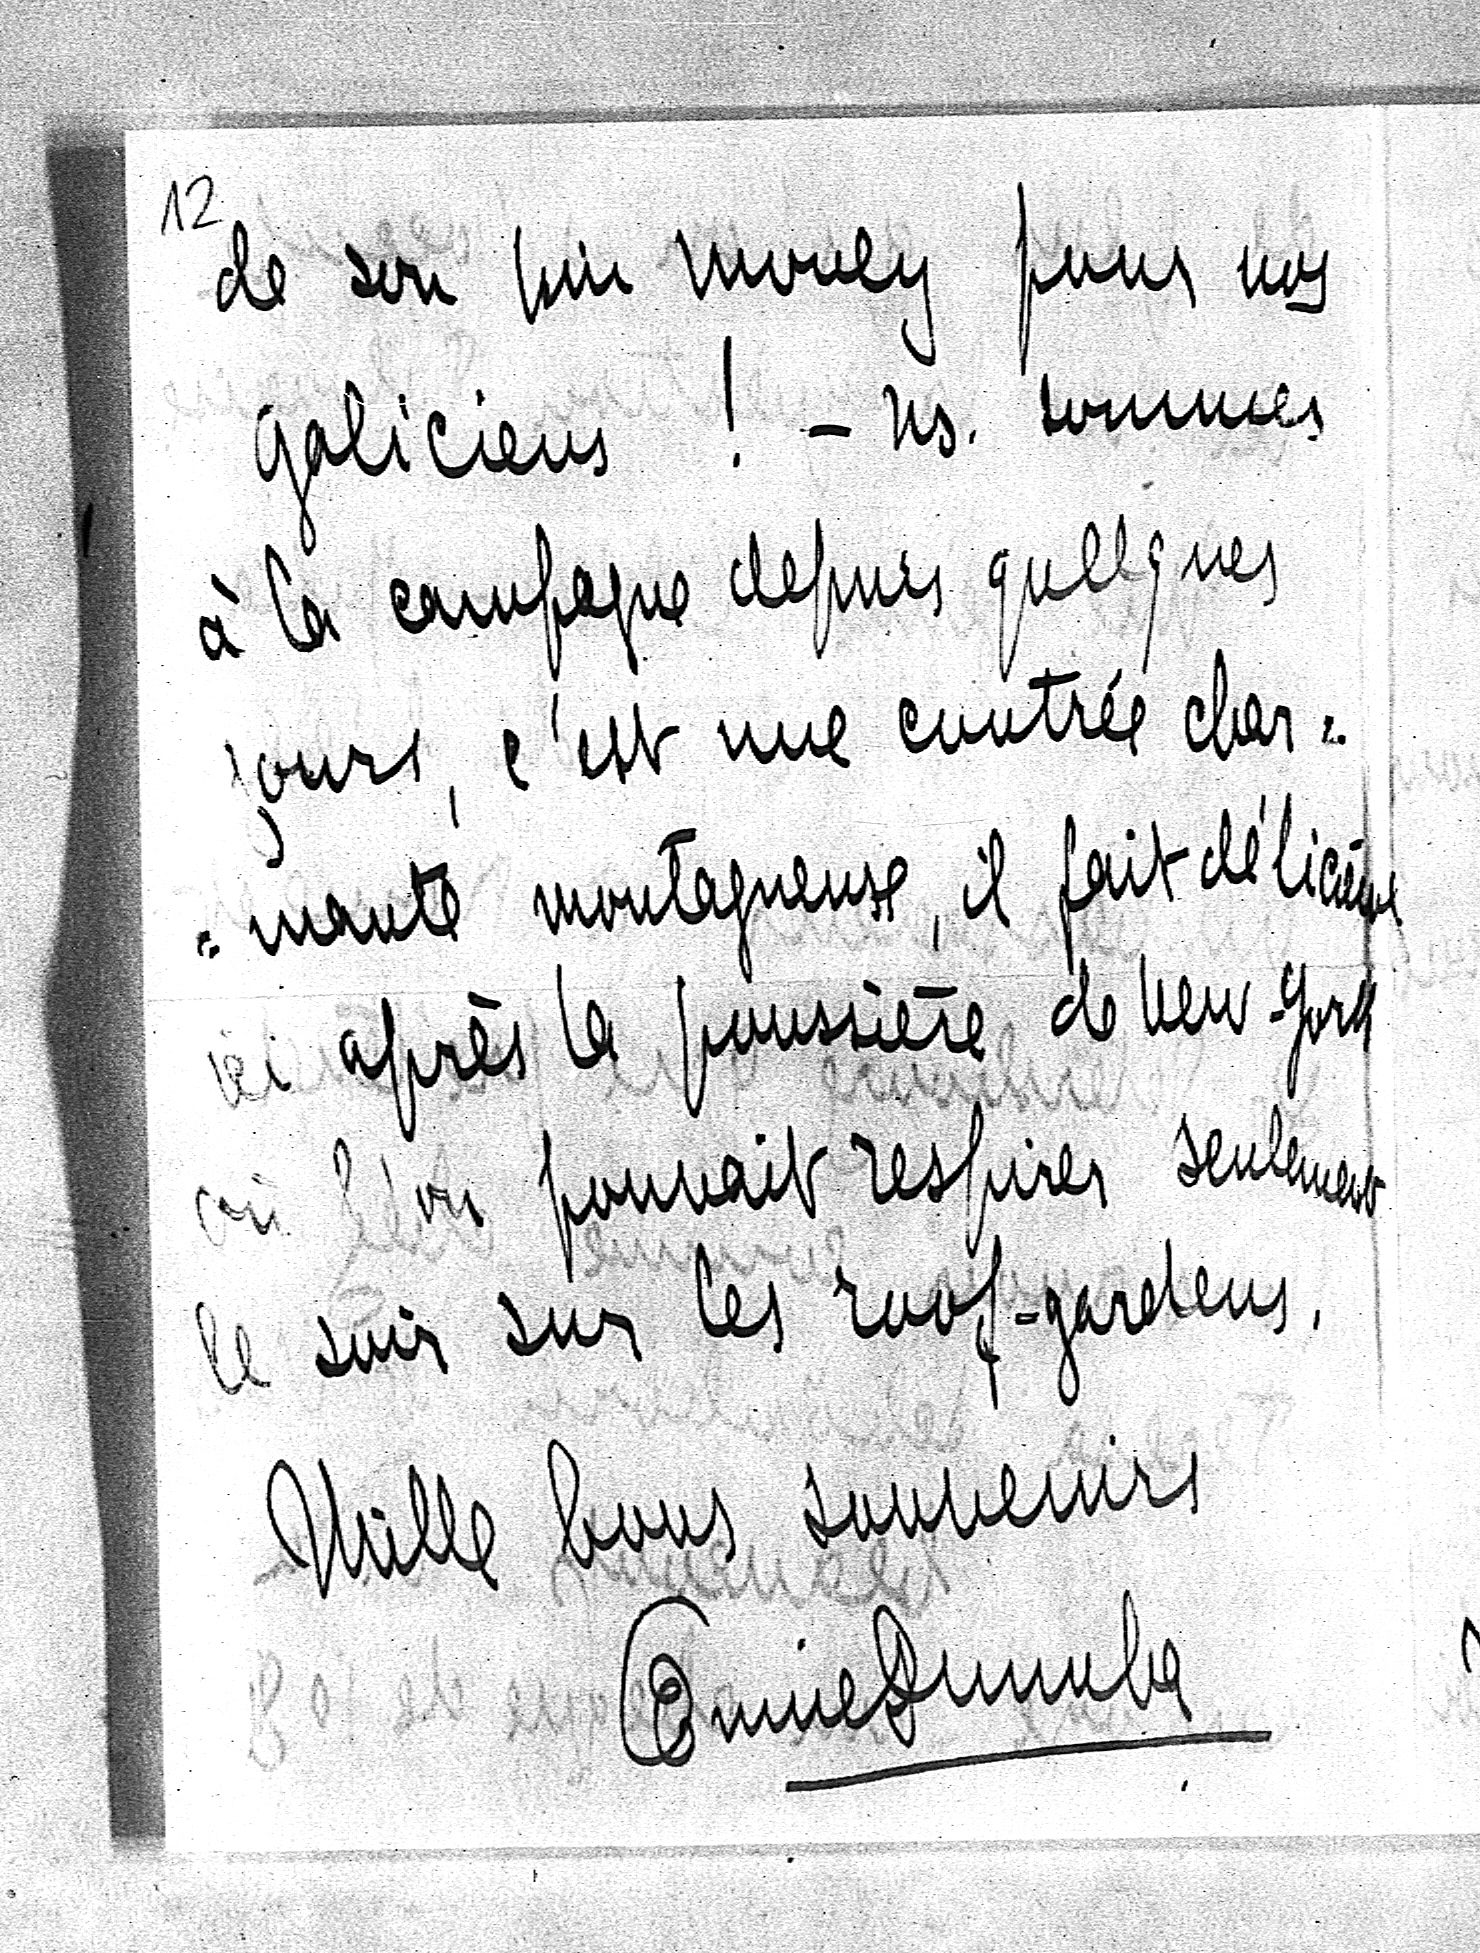 12
de son pin money pour nos
galiciens ! - ns. sommes
à la campagne depuis quelques
jours, c'est une contrée char=
=mante montagneuse, il fait délicieux
ici après la poussière de New-York
où l'on pouvait respirer seulement
le soir sur les roof-gardens.
Mille bons souvenirs
Dumba